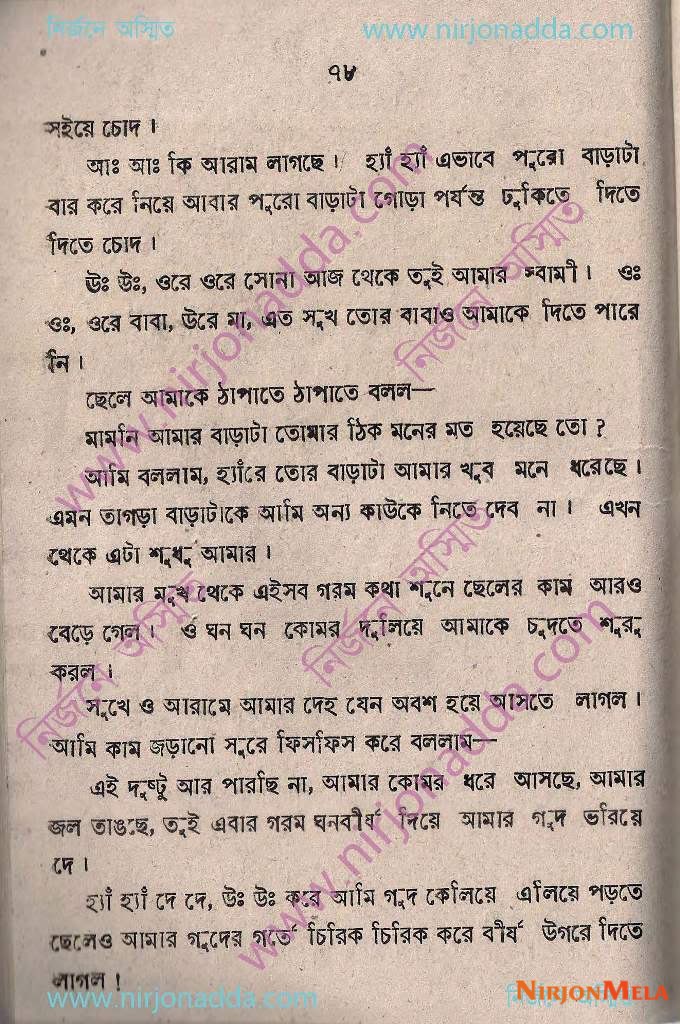 নির্জনে অস্মিত www.nirjonadda.com
৭৮
সইয়ে চোদ ।
আঃ আঃ কি আরাম লাগছে । হ্যাঁ হ্যাঁ এভাবে পুরো বাড়াটা
বার করে নিয়ে আবার পুরো বাড়াটা গোড়া পর্যন্ত ঢুকিতে দিতে
দিতে চোদ ।
ঊঃ উঃ, ওরে ওরে সোনা আজ থেকে তুই আমার স্বামী । ওঃ
ওঃ, ওরে বাবা, উরে মা, এত সুখ তোর বাবাও আমাকে দিতে পারে
নি ।
ছেলে আমাকে ঠাপাতে ঠাপাতে বলল—
মামনি আমার বাড়াটা তোমার ঠিক মনের মত হয়েছে তো ?
আমি বললাম, হ্যাঁরে তোর বাড়াটা আমার খুব মনে ধরেছে ।
এমন তাগড়া বাড়াটাকে আমি অন্য কাউকে নিতে দেব না । এখন
থেকে এটা শুধু আমার ।
আমার মুখ থেকে এইসব গরম কথা শুনে ছেলের কাম আরও
বেড়ে গেল । ও ঘন ঘন কোমর দুলিয়ে আমাকে চুদতে শুরু
করল ।
সুখে ও আরামে আমার দেহ যেন অবশ হয়ে আসতে লাগল ।
আমি কাম জড়ানো সুরে ফিসফিস করে বললাম—
এই দুষ্টু আর পারছি না, আমার কোমর ধরে আসছে, আমার
জল ভাঙছে, তুই এবার গরম ঘনবীর্য দিয়ে আমার গুদ ভরিয়ে
দে ।
হ্যাঁ হ্যাঁ দে দে, উঃ উঃ করে আমি গুদ কেলিয়ে এলিয়ে পড়তে
ছেলেও আমার গুদের গর্তে চিরিক চিরিক করে বীর্য উগরে দিতে
লাগল !
www.nirjonadda.com নির্জনে অস্মিত
NIRJONMELA
www.nirjonadda.com
নির্জনে অস্মিত
নির্জনে অস্মিত
নির্জনে অস্মিত
www.nirjonadda.com